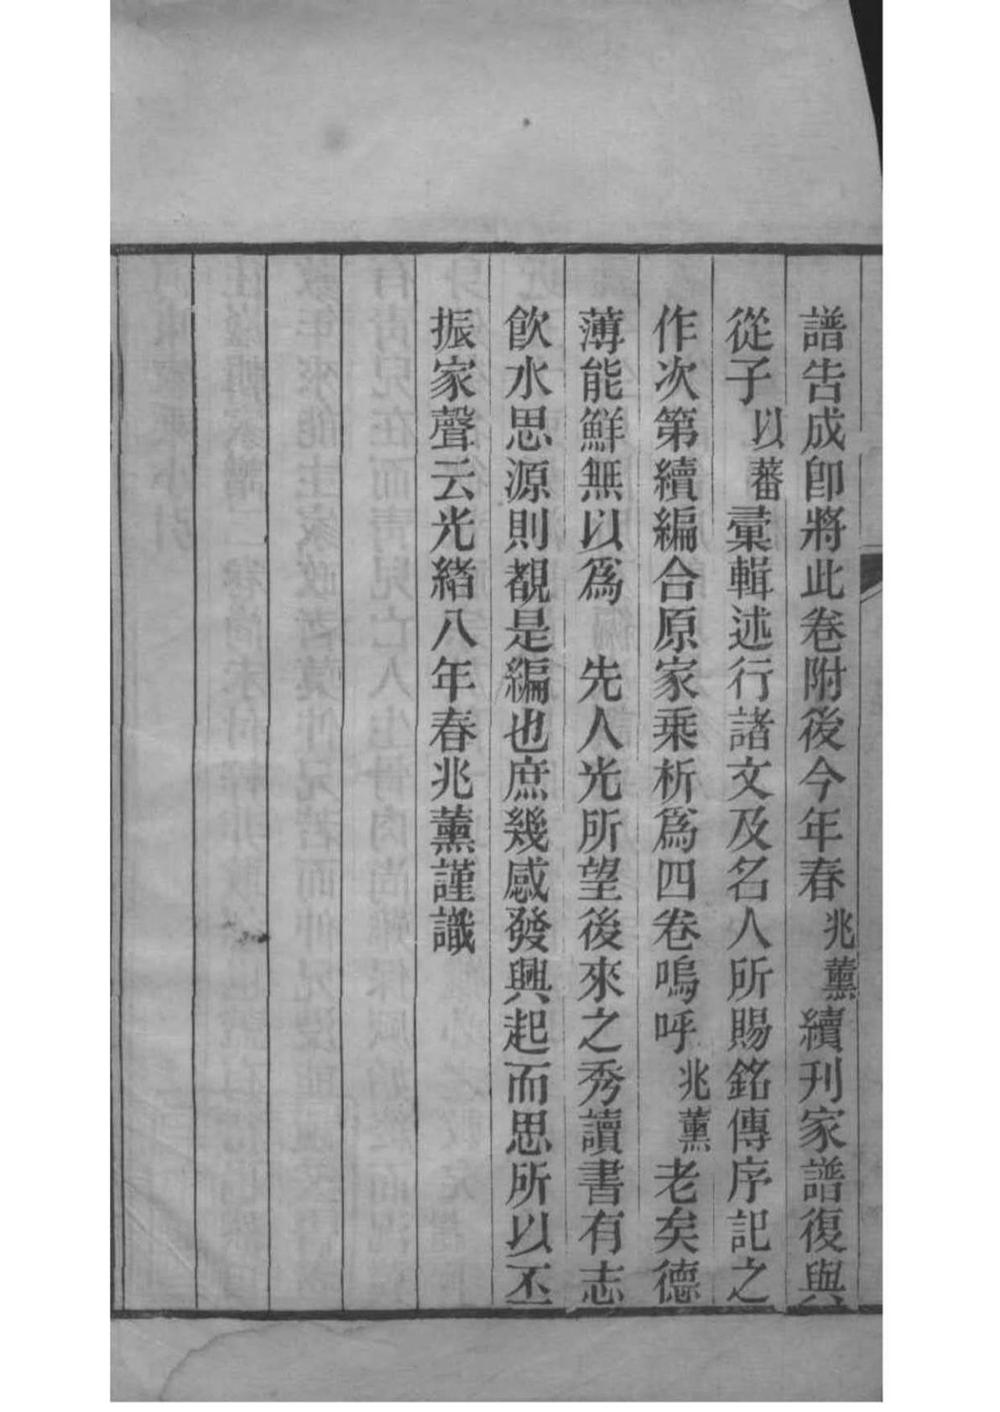 譜告成卽將此卷附後今年春兆薰續刊家譜復與
從子以蕃彙輯述行諸文及名人所賜銘傳序記之
作次第續編合原家乘析爲四卷嗚呼兆薰老矣德
薄能鮮無以爲　先人光所望後來之秀讀書有志
飲水思源則覩是編也庶幾感發興起而思所以丕
振家聲云光緒八年春兆薰謹識